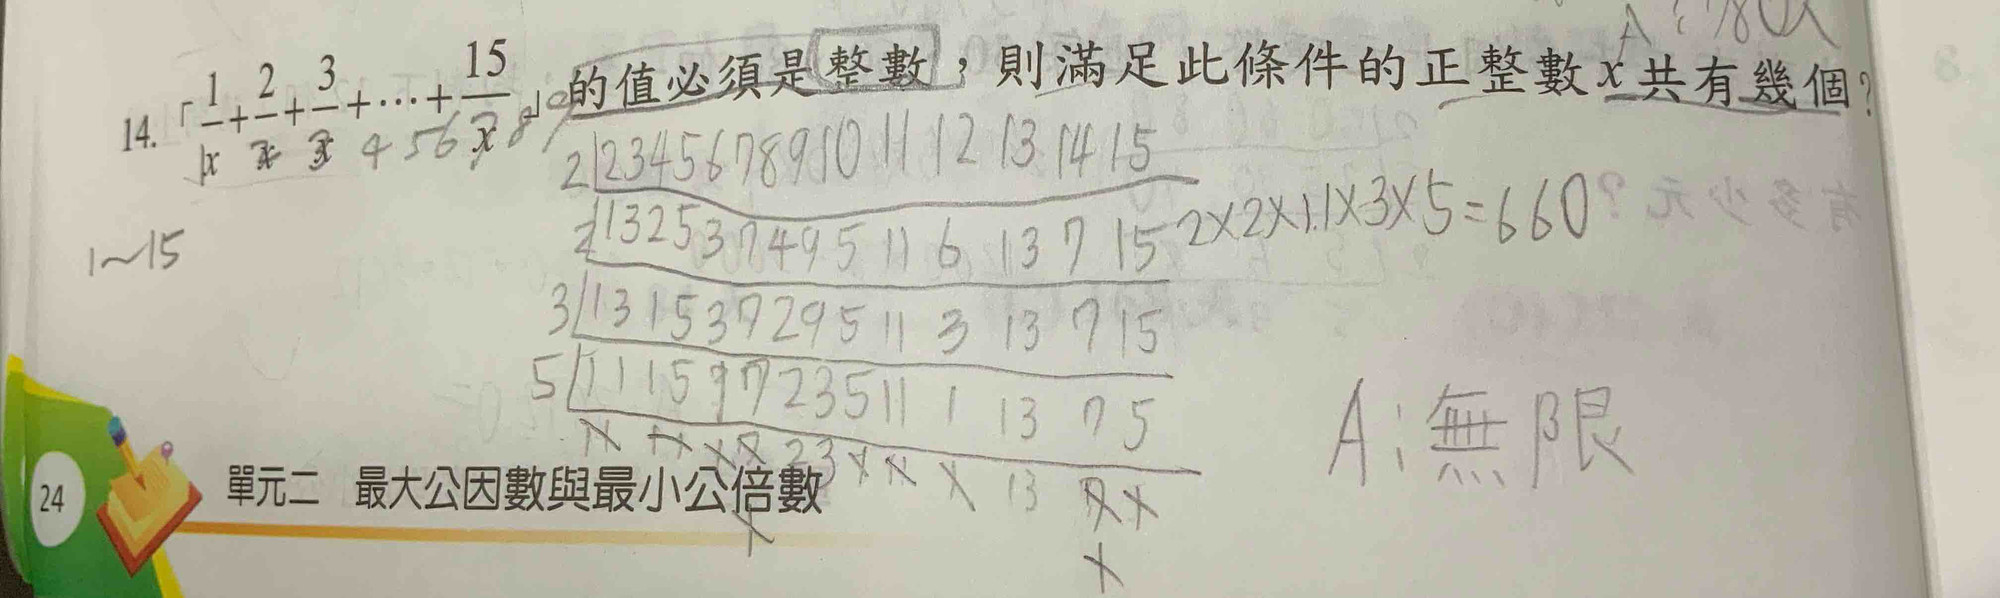 14.「1/x + 2/x + 3/x +…+ 15/x」的值必須是整數，則滿足此條件的正整數x共有幾個？
4 5 6 7 8 9
1~15
2 2 3 4 5 6 7 8 9 10 11 12 13 14 15
2 1 3 2 5 3 7 4 9 5 11 6 13 7 15
2×2×1.1×3×5=660
3 1 3 1 5 3 7 2 9 5 11 3 13 7 15
5 1 1 1 5 7 2 3 5 11 1 13 7 5
2 3 13
A：無限
24 單元二 最大公因數與最小公倍數